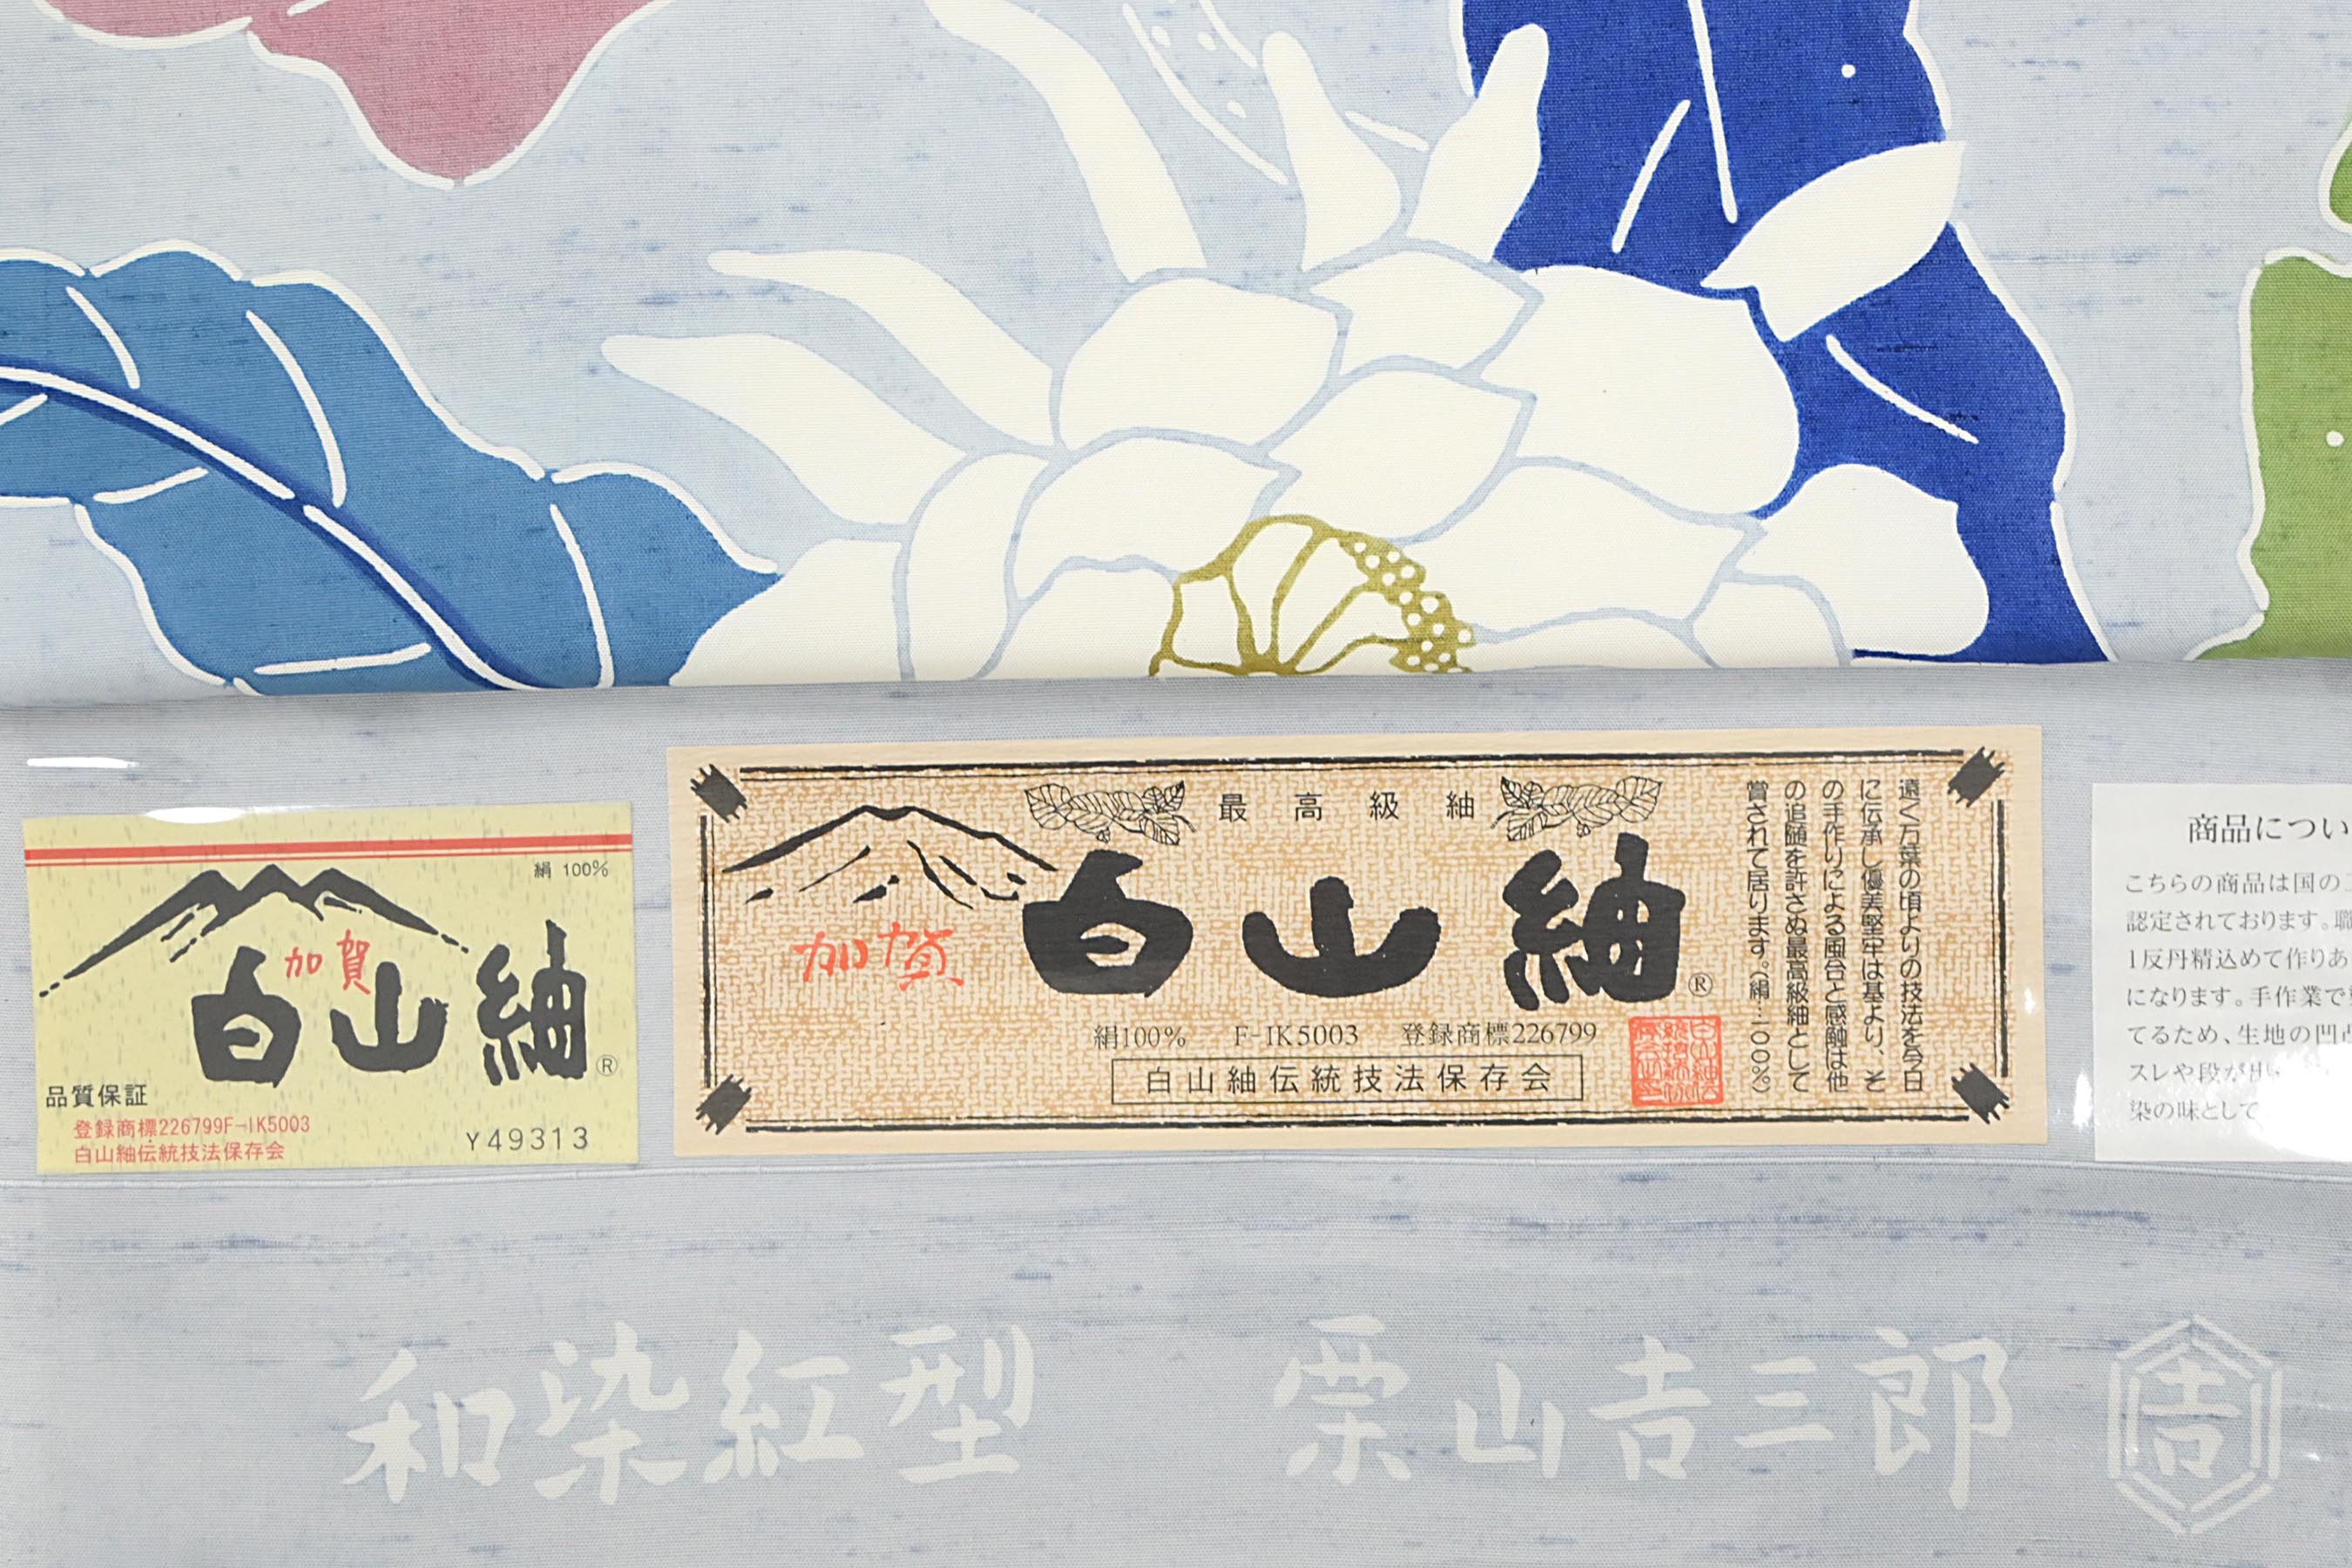 絹 100%
加賀
白山紬®
品質保証
登録商標226799F-IK5003
白山紬伝統技法保存会
Y49313
最高級紬
加賀
白山紬®
絹100% F-IK5003 登録商標226799
白山紬伝統技法保存会
遠く万葉の頃よりの技法を今日
に伝承し優美堅牢は基より、そ
の手作りによる風合と感触は他
の追随を許さぬ最高級紬として
賞されて居ります。(絹…一〇〇%)
商品につい
こちらの商品は国の
認定されております。職
1反丹精込めて作りあ
になります。手作業で
てるため、生地の凹凸
スレや段が出
染の味として
和染紅型 栗山吉三郎
吉